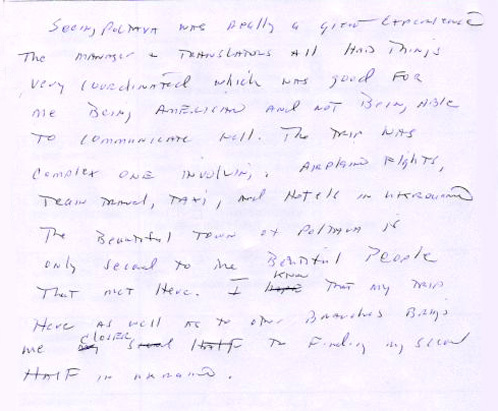 Seeing Poltava was really a great Experience
The manager & TRANSLATORS All HAD Things
very coordinated which was good FOR
me Being AMERICAN AND NOT Being Able
TO COMMUNICATE Well. The TRIP WAS
Complex ONE INVOLVING, AIRPLANE Flights,
TRAIN TRAVEL, TAXI, AND Hotels in
The Beautiful TOWN OF POLTAVA is
only second to the Beautiful People
THAT met Here. I know THAT my TRIP
Here AS well AS to other BRANCHES Brings
me CLOSER To Finding my second
HALF in